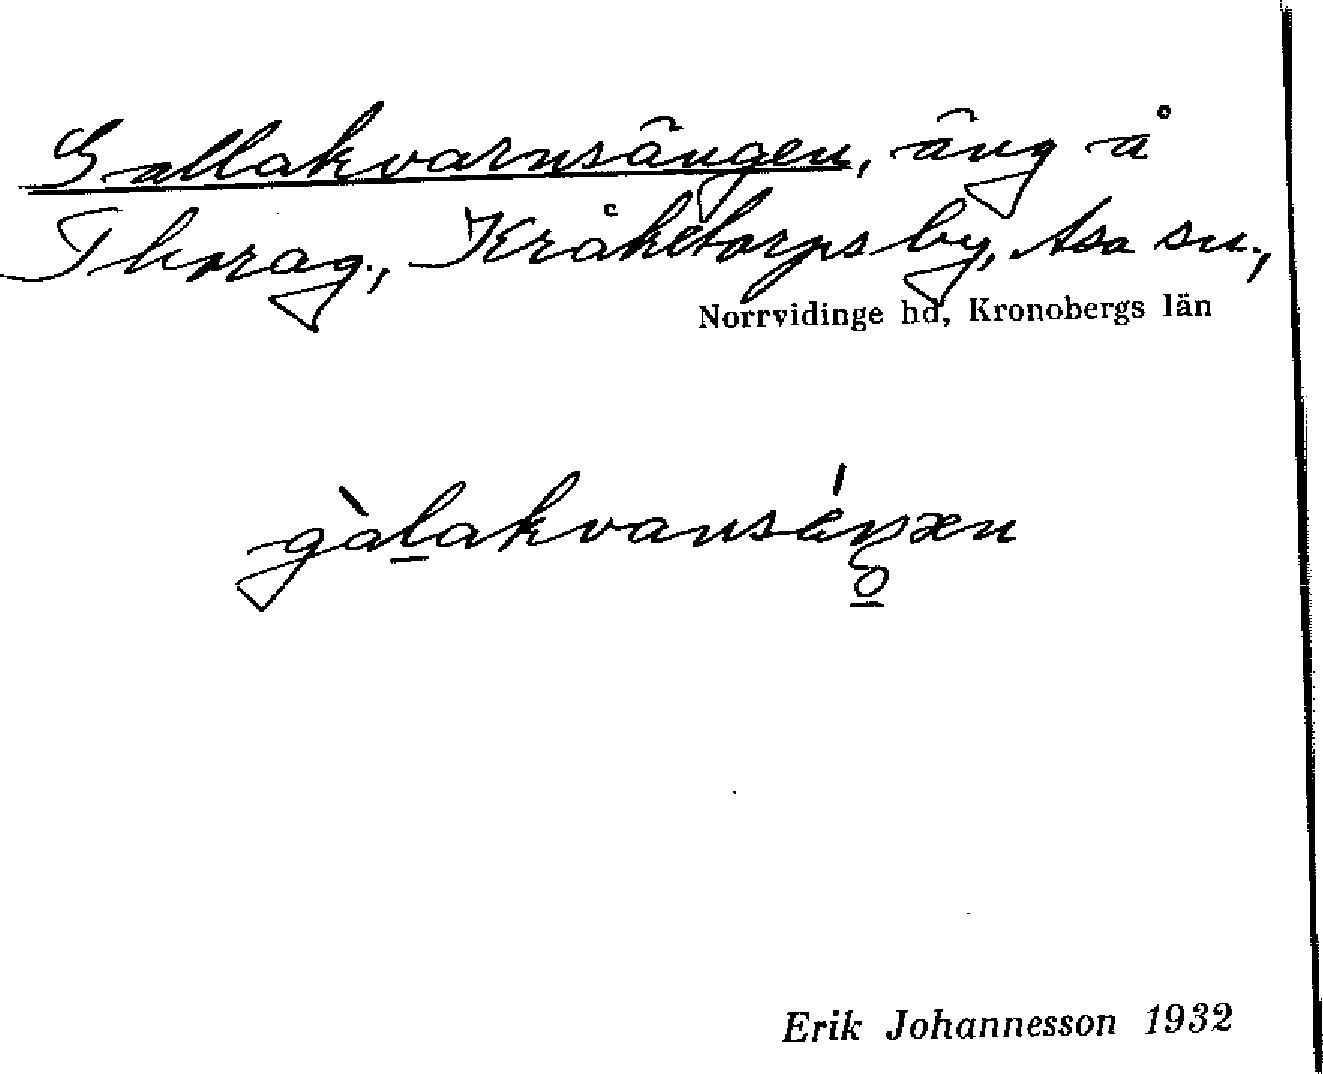 Gallakvarnsängen, äng å
Thorag., Kråketorps by, Asa sn.,
Norrvidinge hd, Kronobergs län
gàlakvansáŋxn
Erik Johannesson 1932